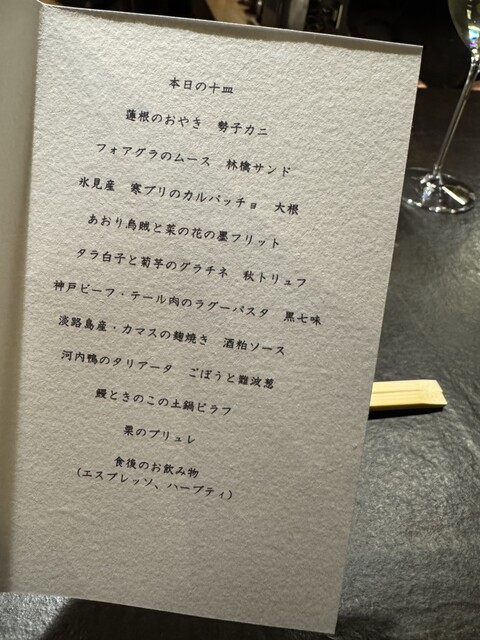 本日の十皿
蓮根のおやき　勢子カニ
フォアグラのムース　林檎サンド
氷見産　寒ブリのカルパッチョ　大根
あおり烏賊と菜の花の墨フリット
タラ白子と菊芋のグラチネ　秋トリュフ
神戸ビーフ・テール肉のラグーパスタ　黒七味
淡路島産・カマスの麹焼き　酒粕ソース
河内鴨のタリアータ　ごぼうと難波葱
鰻ときのこの土鍋ピラフ
栗のブリュレ
食後のお飲み物
（エスプレッソ、ハーブティ）